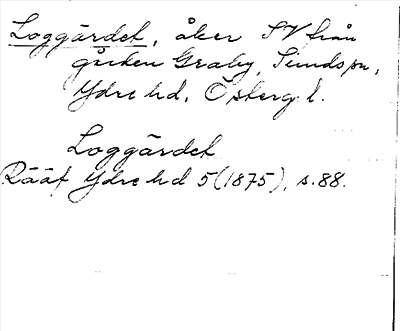 Loggärdet, åker SV från
gården Graby, Sunds sn,
Ydre hd, Österg. l.
Loggärdet
Rääf Ydre hd 5 (1875), s. 88.